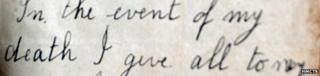 In the event of my
death I give all to my
HMCTS